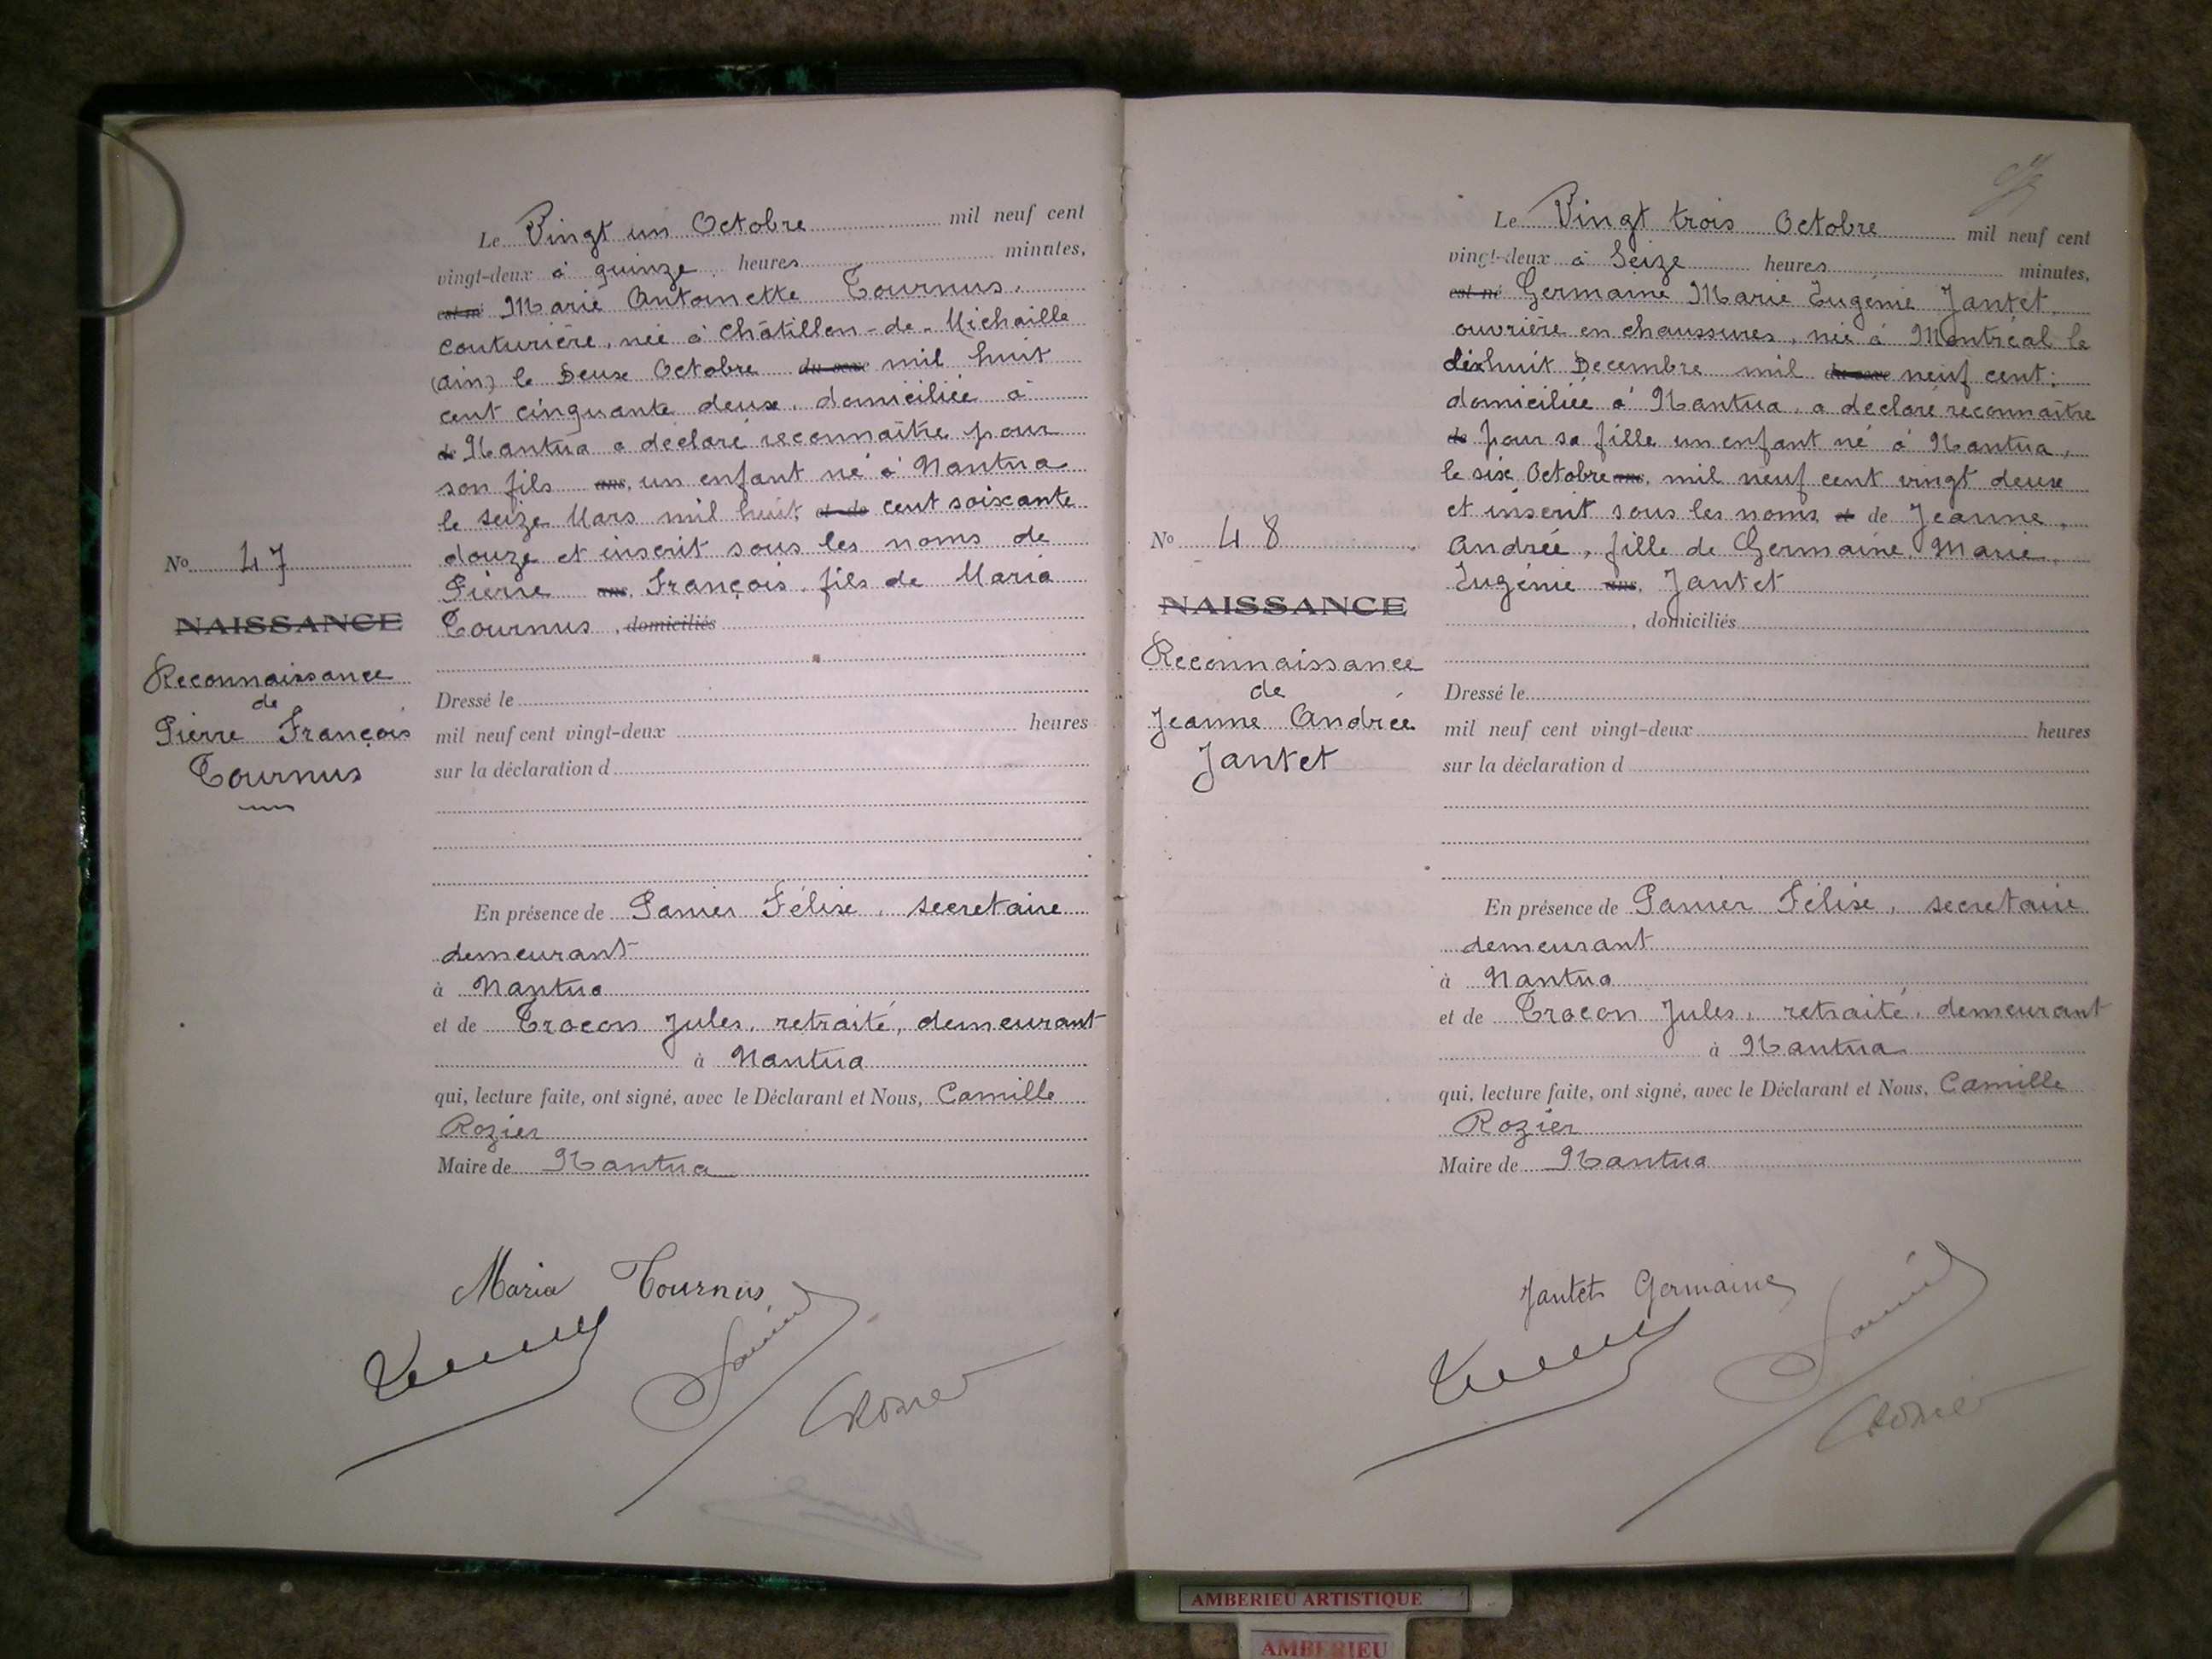 Le Vingt un Octobre mil neuf cent
vingt-deux à quinze heures minutes,
est né Marie Antoinette Tournus,
couturière, née à Châtillon-de-Michaille
(ain) le Deux Octobre du sexe mil huit
cent cinquante deux, domiciliée à
de Nantua a déclaré reconnaître pour
son fils ans, un enfant né à Nantua
le seize Mars mil huit et de cent soixante
douze et inscrit sous les noms de
Pierre ans, François, fils de Maria
Tournus, domiciliés
No 47
NAISSANCE
Reconnaissance
de
Pierre François
Tournus
Dressé le
mil neuf cent vingt-deux heures
sur la déclaration d
En présence de Panier Félix, secretaire
demeurant
à Nantua
et de Trocon Jules, retraité, demeurant
à Nantua
qui, lecture faite, ont signé, avec le Déclarant et Nous, Camille
Rozier
Maire de Nantua
Maria Tournus
Le Vingt trois Octobre mil neuf cent
vingt-deux à Seize heures minutes,
est né Germaine Marie Eugénie Jantet,
ouvrière en chaussures, née à Montréal le
dixhuit Decembre mil du sexe neuf cent;
domiciliée à Nantua, a déclaré reconnaître
de pour sa fille un enfant né à Nantua,
le six Octobre ans, mil neuf cent vingt deux
et inscrit sous les noms et de Jeanne,
Andrée, fille de Germaine, Marie,
Eugénie ans, Jantet
, domiciliés
No 48
NAISSANCE
Reconnaissance
de
Jeanne Andrée
Jantet
Dressé le
mil neuf cent vingt-deux heures
sur la déclaration d
En présence de Panier Félix, secretaire
demeurant
à Nantua
et de Trocon Jules, retraité, demeurant
à Nantua
qui, lecture faite, ont signé, avec le Déclarant et Nous, Camille
Rozier
Maire de Nantua
Jantet Germaine
AMBERIEU ARTISTIQUE
AMBERIEU